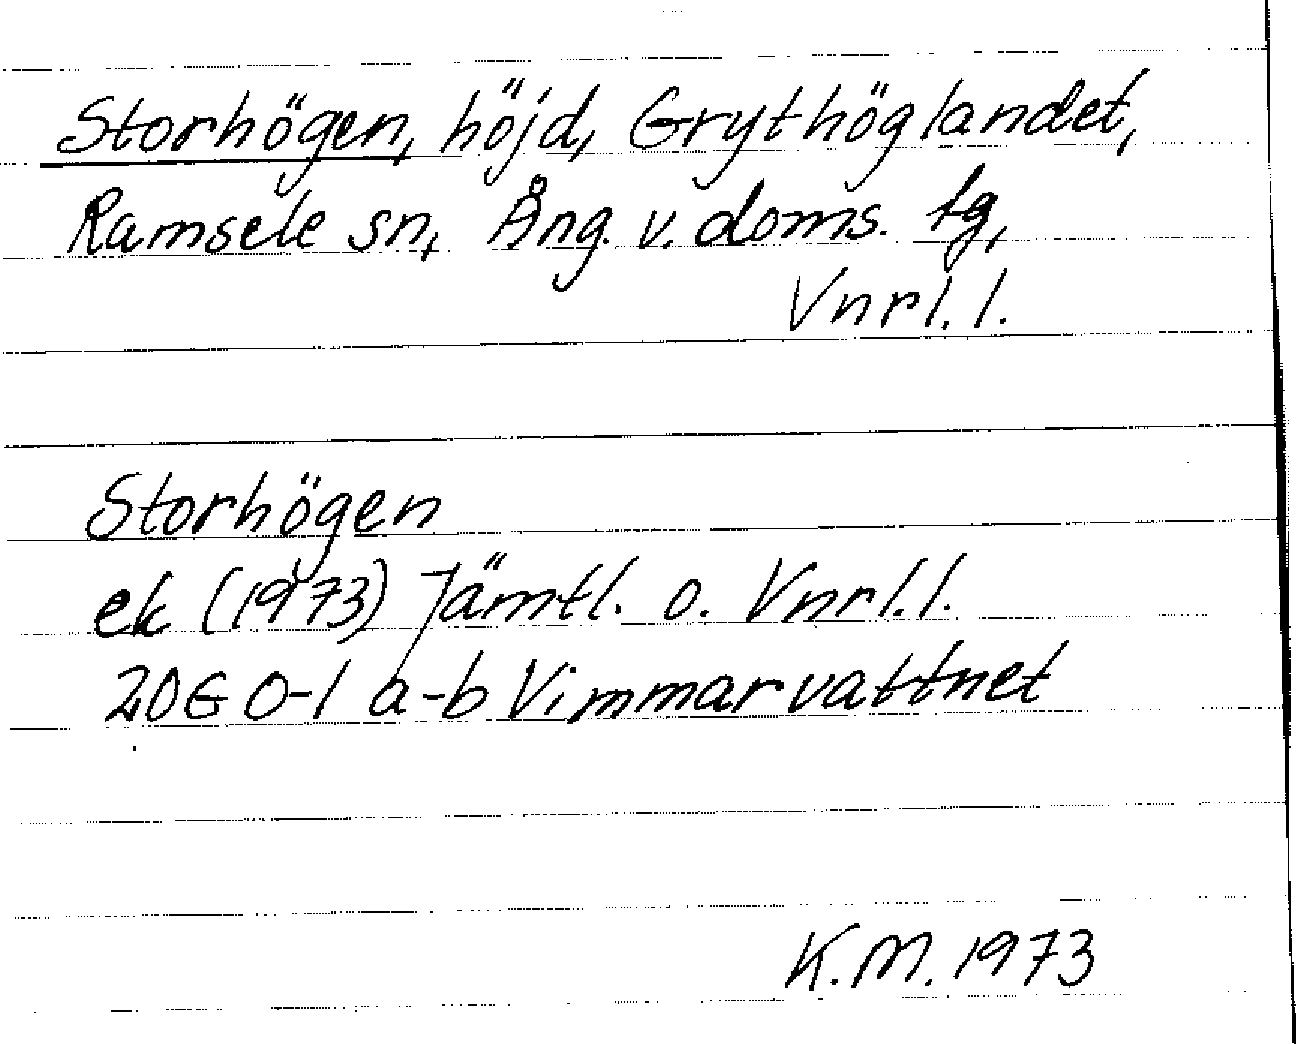 Storhögen, höjd, Grythöglandet,
Ramsele sn, Ång. v. doms. tg,
Vnrl. l.
Storhögen
ek (1973) Jämtl. o. Vnrl. l.
20G 0-1 a-b Vimmarvattnet
K.M. 1973